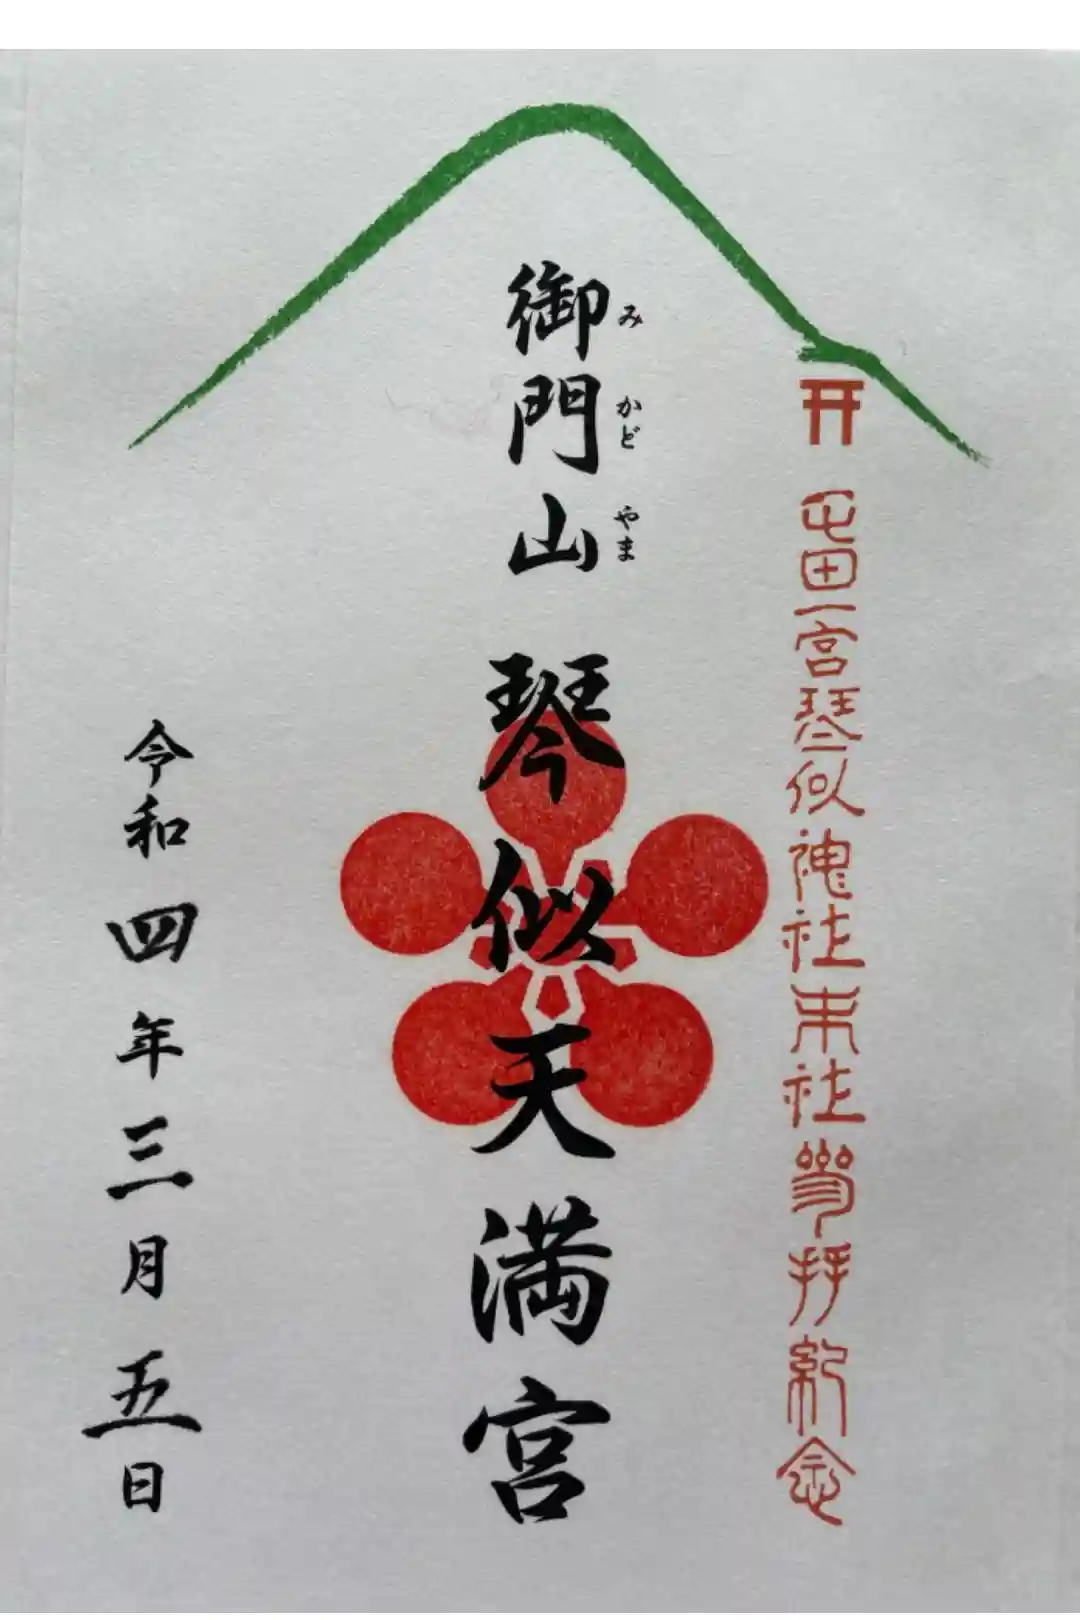 屯田一宮琴似神社末社参拝紀念
御門山 琴似天満宮
み かど やま
令和四年三月五日